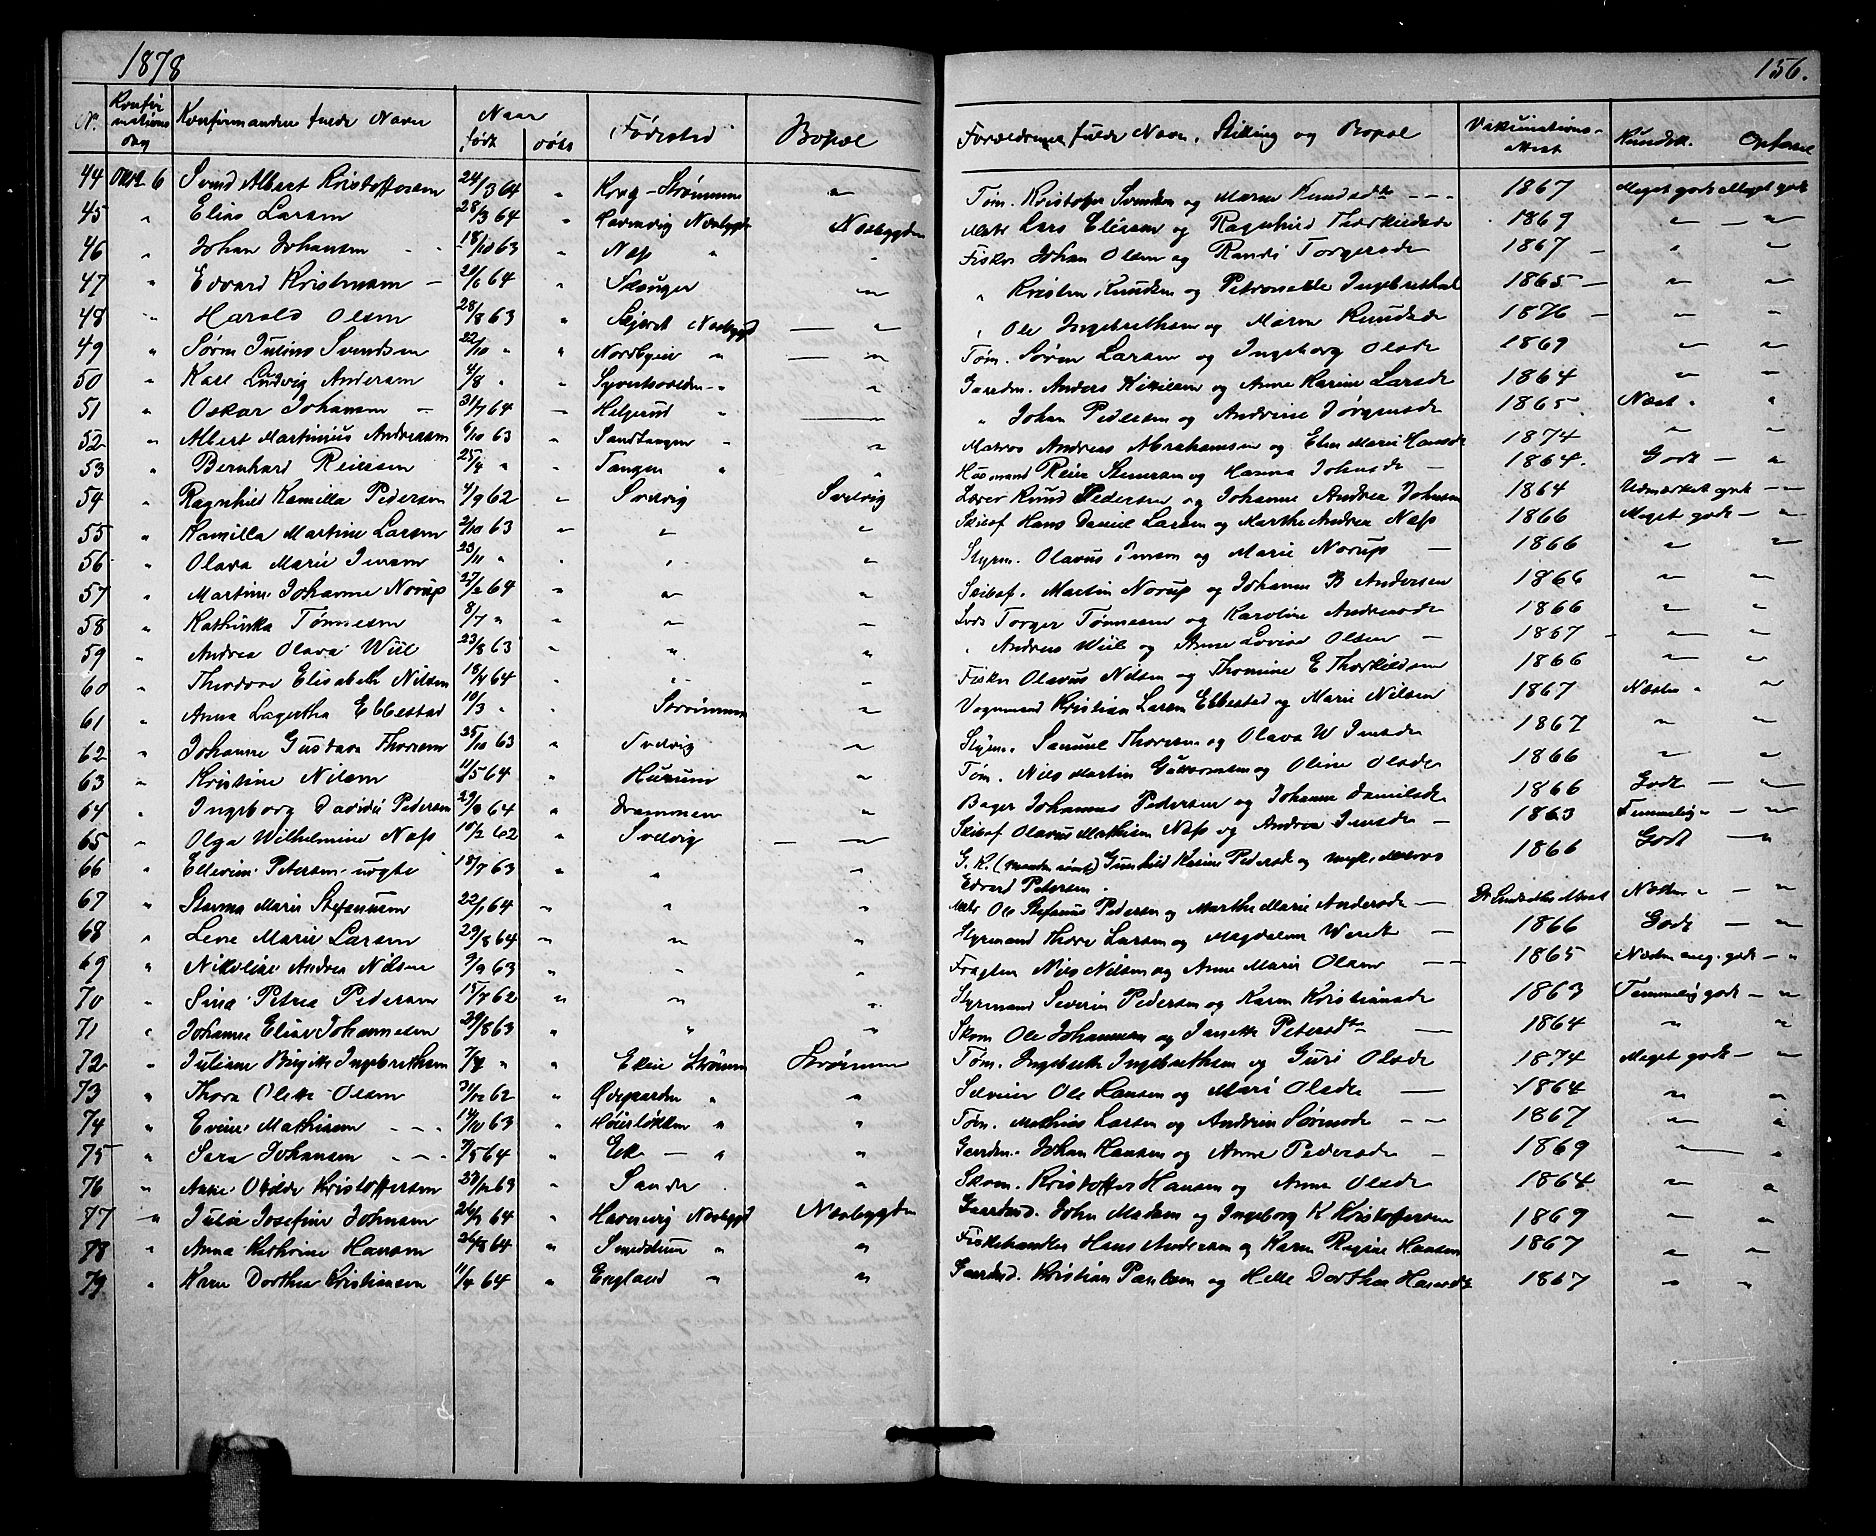 1878
156.
No. Konfirmations dag Konfirmandens fulde Navn Naar født døbt Fødested Bopæl Forældrenes fulde Navn, Stilling og Bopæl Vakinations-attest Kundsk. Opførsel
44 Oktb 6 Svend Albert Kristoffersen 24/3 64 " Krog - Strømmen " Tøm. Kristoffer Svendsen og Maren Knudsdtr - - - 1867 Meget godt Meget godt
45 " Elias Larsen 28/3 64 " Havnevig Nesbygd Nesbygden Matr Lars Eliesen og Ragnhild Thorkildsdr 1869 " "
46 " Johan Johansen - - 18/10 63 " Næss " " Fisker Johan Olsen og Randi Torgersdr 1867 - " "
47 " Edvard Kristensen - 20/6 64 " " " Kristen Knudsen og Petronelle Ingebrethsd 1865 - " "
48 " Harald Olsen 28/8 63 " Nesbygd " " Ole Ingebrethsen og Maren Knudsdr 1876 - " "
49 " Søren Julius Svendsen 22/10 " " Nordbyeie " " Tøm. Søren Larsen og Ingeborg Olsdr 1869 " "
50 " Karl Ludvig Andersen 4/8 " " " " Gaardm. Anders Kittilsen og Anne Karine Larsdr 1864 " "
51 " Oskar Johansen - 31/7 64 " Helgerud " " Johan Pedersen og Andrine Jørgensdr 1865 Næst " "
52 " Albert Martinius Andreasen 6/10 63 " Sandtangen " " Matros Andreas Abrahamsen og Elen Marie Hansdr 1874 " "
53 " Bernhard Reiersen 25/4 " " Tangen " " Husmand Reier Simensen og Hanna Johnsdr - 1864. Godt - "
54 " Ragnhild Kamilla Pedersen 4/9 62 " Svelvig Svelvig Lærer Knud Pedersen og Johanne Andrea Johnsen 1864 Udmærket godt - "
55 " Kamilla Martine Larsen 2/10 63 " " " Skibsf Hans Daniel Larsen og Marthe Andrea Næss 1866 Meget godt - "
56 " Olava Marie Jensen 23/11 " " " " Styrm. Olavus Jensen og Marie Norup - 1866 " "
57 " Martine Johanne Norup 27/2 64 " " " Skibsf. Martin Norup og Johanne B Andersen 1866 " "
58 " Kathinka Tønnesen 8/7 " " " " Lods Torger Tønnesen og Karoline Andreasdr 1866 " "
59 " Andrea Olava Wiil 23/8 63 " " " " Andreas Wiil og Anne Lovise Olsen - 1867 - " "
60 " Theodora Elisabeth Nilsen 18/4 64 " " Fisker Olavus Nilsen og Thomine E Thorkildsen 1866 " "
61 " Anna Lagertha Ebbestad 19/3 " " Strømmen " Vognmand Kristian Larsen Ebbestad og Marie Nilsen 1867 Næsten " "
62 " Johanne Gustava Thoresen 25/10 63 " Svelvig " Styrm. Samuel Thoresen og Olava W Jensdr 1867 " "
63 " Kristine Nilsen 11/5 64 " Hurum " Tøm. Nils Martin og Oline Olsdr 1866 " "
64 " Ingeborg Davidie Pedersen 29/9 64 " Drammen " Bager Johannes Pedersen og Johanne Danielsdr 1866 Godt - "
65 " Olga Wilhelmine Næss 10/2 62 " Svelvig - " Skibsf Olavus Mathisen Næss og Andrea Jensdr - 1863 Temmelig - "
66 " Ellevine Petersen - uægte 18/7 63 " " " G. K. Gunhild Karine Pedersdr og Matros Edvard Petersen. 1866 Godt - "
67 " Marie Stefanusen 22/1 64 " " " Matr Ole Stefanus Pedersen og Marthe Marie Andersdr - Næsten " - "
68 " Lene Marie Larsen 29/8 64 " " " Styrmand Thore Larsen og Magdalene - 1866 Godt - "
69 " Nikoline Andrea Nilsen 9/9 63 " " " Nils Nilsen og Anne Marie Olsen - - 1865 Næsten meg. godt - "
70 " Sina Petrea Pedersen 15/7 62 " " " Styrmand Severin Pedersen og Karen Kristiansdr 1863 Temmelig godt - "
71 " Johanne Elise Johannesen 29/8 63 " " " Skom Ole Johannesen og Janette Petersdtr - 1864 " "
72 " Juliane Birgitte Ingebrethsen 7/9 " " Ekeie Strømm Strømmen Tøm. Ingebreth Ingebrethsen og Guri Olsdr 1874 Meget godt - "
73 " Thora Olette Olsen 31/12 62 " Øvrgaarden " " Selveier Ole Hansen og Mari Olsdr - 1864 " "
74 " Eveine Mathisen - - - 14/10 63 " Høiesløkken " " Tøm. Mathias Larsen og Andrine Sørensdr - - 1867 " "
75 " Sara Johansen - - - /5 64 " Ek - " " Gaardm. Johan Hansen og Anne Pedersdr - 1869 - "
76 " Anne Otilde Kristoffersen 27/12 63 " Sande " Skom. Kristoffer Hansen og Anne Olsdr 1864 " "
77 " Julie Josefine Johnsen 26/1 64 " Havnevig Nesbygd Nesbygden Gaardmd. John Madsen og Ingeborg K Kristoffersen 1869 " "
78 " Anna Kathrine Hansen 26/8 64 " " " Fiskehandler Hans Andersen og Karen Regine Hansen 1867 " "
79. " Karen Dorthea Kristiansen 11/4 64 " England " " Gaardmd. Kristian Paulsen og Helle Dorthea Hansdtr 1867 " "